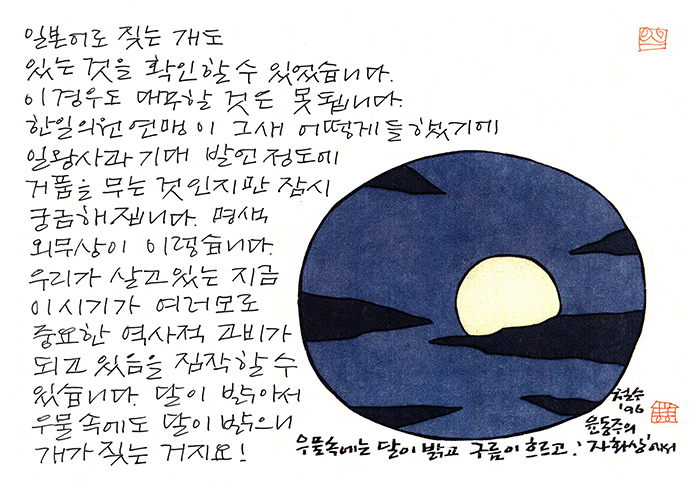 일본어로 짖는 개도
있는 것을 확인할 수 있었습니다.
이 경우도 대꾸할 것은 못됩니다.
한일의원 연맹이 그새 어떻게 들 하셨기에
일왕사과 기대 발언 정도에
거품을 무는 것인지만 잠시
궁금해 집니다. 명색
외무상이 이렇습니다.
우리가 살고있는 지금
이 시기가 여러모로
중요한 역사적 고비가
되고 있음을 짐작할 수
있습니다. 달이 밝아서
우물 속에도 달이 밝으니
개가 짖는 거지요!
철수
'96
우물속에는 달이 밝고 구름이 흐르고! 윤동주의
'자화상'에서